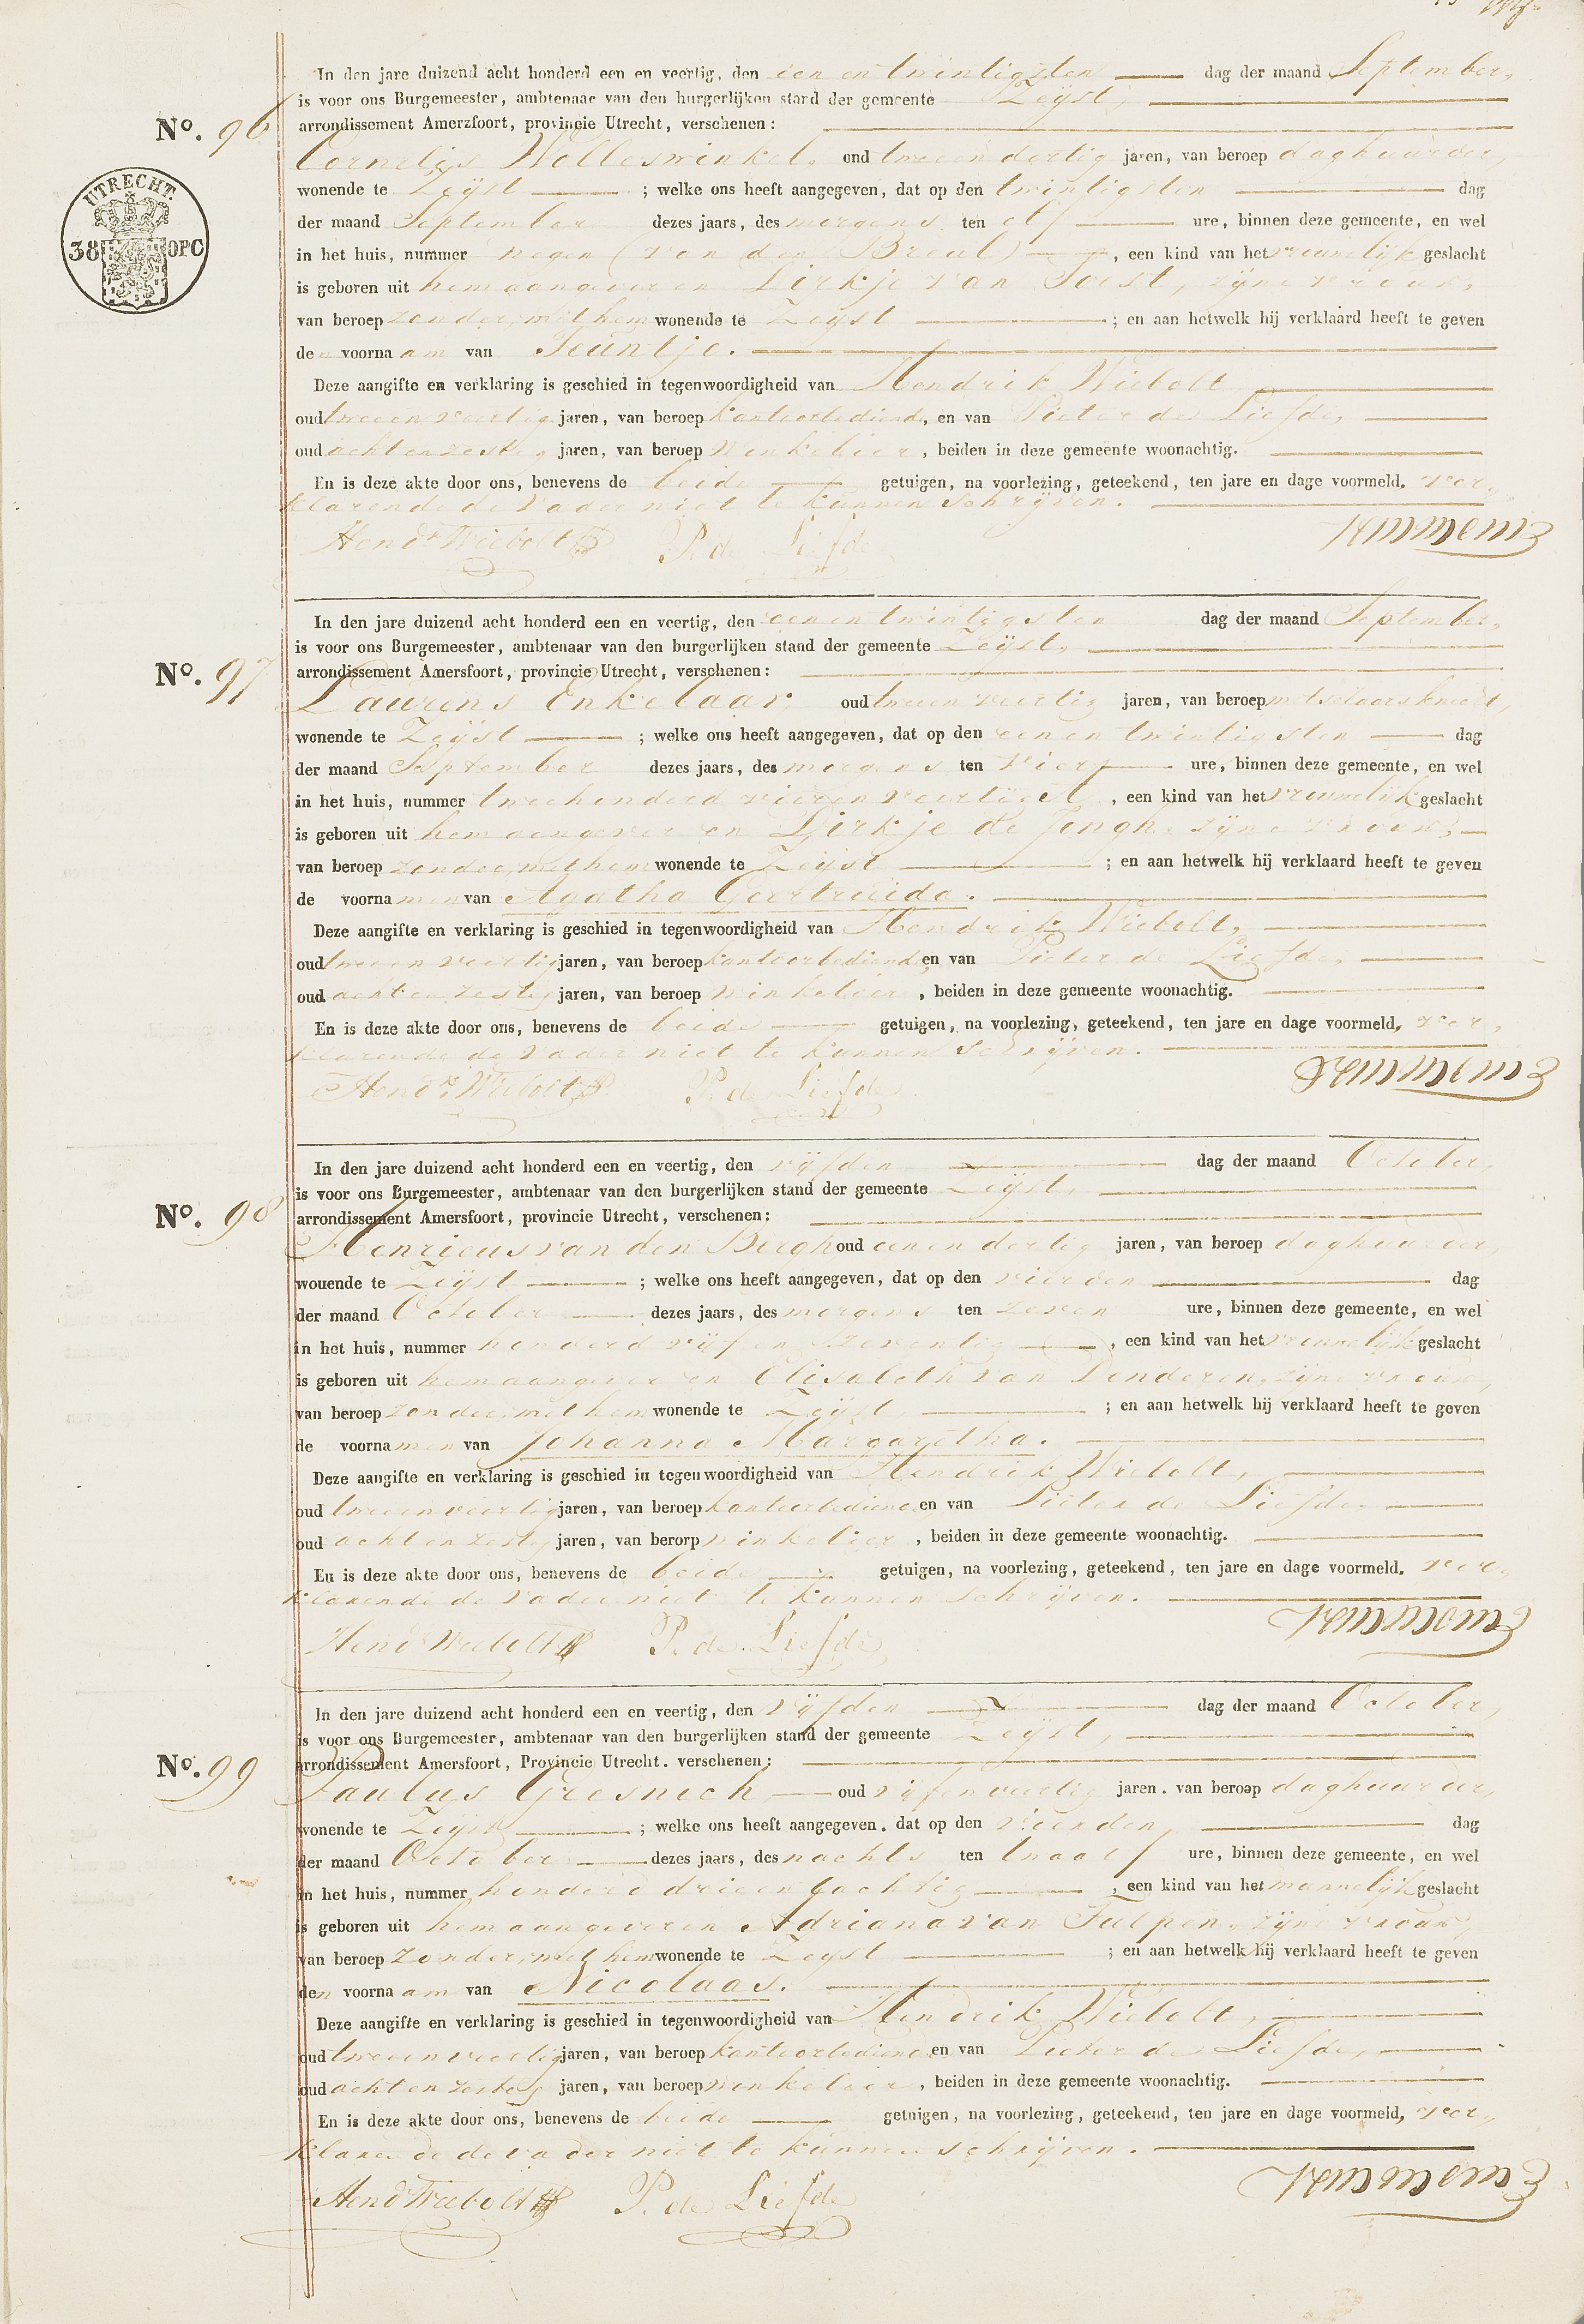 In den jare duizend acht honderd een en veertig, den een en twintigsten dag der maand September,
is voor ons Burgemeester, ambtenaar van den burgerlijken stand der gemeente Zeijst,
No. 96
arrondissement Amerzfoort, provincie Utrecht, verschenen:
Cornelijs Wolleswinkel, oud twee en dertig jaren, van beroep daghuurder,
UTRECHT.
38 OPC
wonende te Zeijst ; welke ons heeft aangegeven, dat op den twintigsten dag
der maand September dezes jaars, des morgens ten elf ure, binnen deze gemeente, en wel
in het huis, nummer negen (van den Breul) , een kind van het vrouwelijk geslacht
is geboren uit hem aangever en Dirkje van Soest, zijne vrouw,
van beroep zonder, met hem wonende te Zeijst ; en aan hetwelk hij verklaard heeft te geven
den voornaam van Teuntje.
Deze aangifte en verklaring is geschied in tegenwoordigheid van Hendrik Wiebolt
oud twee en veertig jaren, van beroep kantoorbediende, en van Pieter de Liefde,
oud acht en zestig jaren, van beroep winkelier, beiden in deze gemeente woonachtig.
En is deze akte door ons, benevens de beide getuigen, na voorlezing, geteekend, ten jare en dage voormeld. ver-
klarende de vader niet te kunnen schrijven.
Hendk Wiebolt P. de Liefde
In den jare duizend acht honderd een en veertig, den een en twintigsten dag der maand September,
is voor ons Burgemeester, ambtenaar van den burgerlijken stand der gemeente Zeijst,
No. 97
arrondissement Amersfoort, provincie Utrecht, verschenen:
Laurens Enkelaar, oud twee en veertig jaren, van beroep metselaarsknecht,
wonende te Zeijst ; welke ons heeft aangegeven, dat op den een en twintigsten dag
der maand September dezes jaars, des morgens ten vier ure, binnen deze gemeente, en wel
in het huis, nummer twee honderd vier en veertig , een kind van het vrouwelijk geslacht
is geboren uit hem aangever en Dirkje de Jongh, zijne vrouw,
van beroep zonder, met hem wonende te Zeijst ; en aan hetwelk hij verklaard heeft te geven
de voornamen van Agatha Geertruida.
Deze aangifte en verklaring is geschied in tegenwoordigheid van Hendrik Wiebolt,
oud twee en veertig jaren, van beroep kantoorbediende, en van Pieter de Liefde,
oud acht en zestig jaren, van beroep winkelier, beiden in deze gemeente woonachtig.
En is deze akte door ons, benevens de beide getuigen, na voorlezing, geteekend, ten jare en dage voormeld, ver-
klarende de vader niet te kunnen schrijven.
Hendk Wiebolt P. de Liefde
In den jare duizend acht honderd een en veertig, den vijfden dag der maand October,
is voor ons Burgemeester, ambtenaar van den burgerlijken stand der gemeente Zeijst,
No. 98
arrondissement Amersfoort, provincie Utrecht, verschenen:
Henricus van den Bergh oud een en dertig jaren, van beroep daghuurder,
wonende te Zeijst ; welke ons heeft aangegeven, dat op den vierden dag
der maand October dezes jaars, des morgens ten zeven ure, binnen deze gemeente, en wel
in het huis, nummer honderd vijf en zeventig , een kind van het vrouwelijk geslacht
is geboren uit hem aangever en Elisabeth van Denderen, zijne vrouw,
van beroep zonder, met hem wonende te Zeijst ; en aan hetwelk hij verklaard heeft te geven
de voornamen van Johanna Margaretha.
Deze aangifte en verklaring is geschied in tegenwoordigheid van Hendrik Wiebolt,
oud twee en veertig jaren, van beroep kantoorbediende en van Pieter de Liefde,
oud acht en zestig jaren, van berorp winkelier, beiden in deze gemeente woonachtig.
En is deze akte door ons, benevens de beide getuigen, na voorlezing, geteekend, ten jare en dage voormeld. ver-
klarende de vader niet te kunnen schrijven.
Hendk Wiebolt P. de Liefde
In den jare duizend acht honderd een en veertig, den vijfden dag der maand October,
is voor ons Burgemeester, ambtenaar van den burgerlijken stand der gemeente Zeijst,
No. 99
arrondissement Amersfoort, Provincie Utrecht. verschenen:
Paulus Gresnich oud vijf en veertig jaren. van beroep daghuurder,
wonende te Zeijst ; welke ons heeft aangegeven, dat op den vierden, dag
der maand October dezes jaars, des nachts ten twaalf ure, binnen deze gemeente, en wel
in het huis, nummer honderd drie en tachtig , een kind van het mannelijk geslacht
is geboren uit hem aangever en Adriana van Tulpen, zijne vrouw,
van beroep zonder, met hem wonende te Zeijst ; en aan hetwelk hij verklaard heeft te geven
den voornaam van Nicolaas.
Deze aangifte en verklaring is geschied in tegenwoordigheid van Hendrik Wiebolt,
oud twee en veertig jaren, van beroep kantoorbediende en van Pieter de Liefde,
oud acht en zestig jaren, van beroep winkelier, beiden in deze gemeente woonachtig.
En is deze akte door ons, benevens de beide getuigen, na voorlezing, geteekend, ten jare en dage voormeld, ver-
klarende de vader niet te kunnen schrijven.
Hendk Wiebolt P. de Liefde